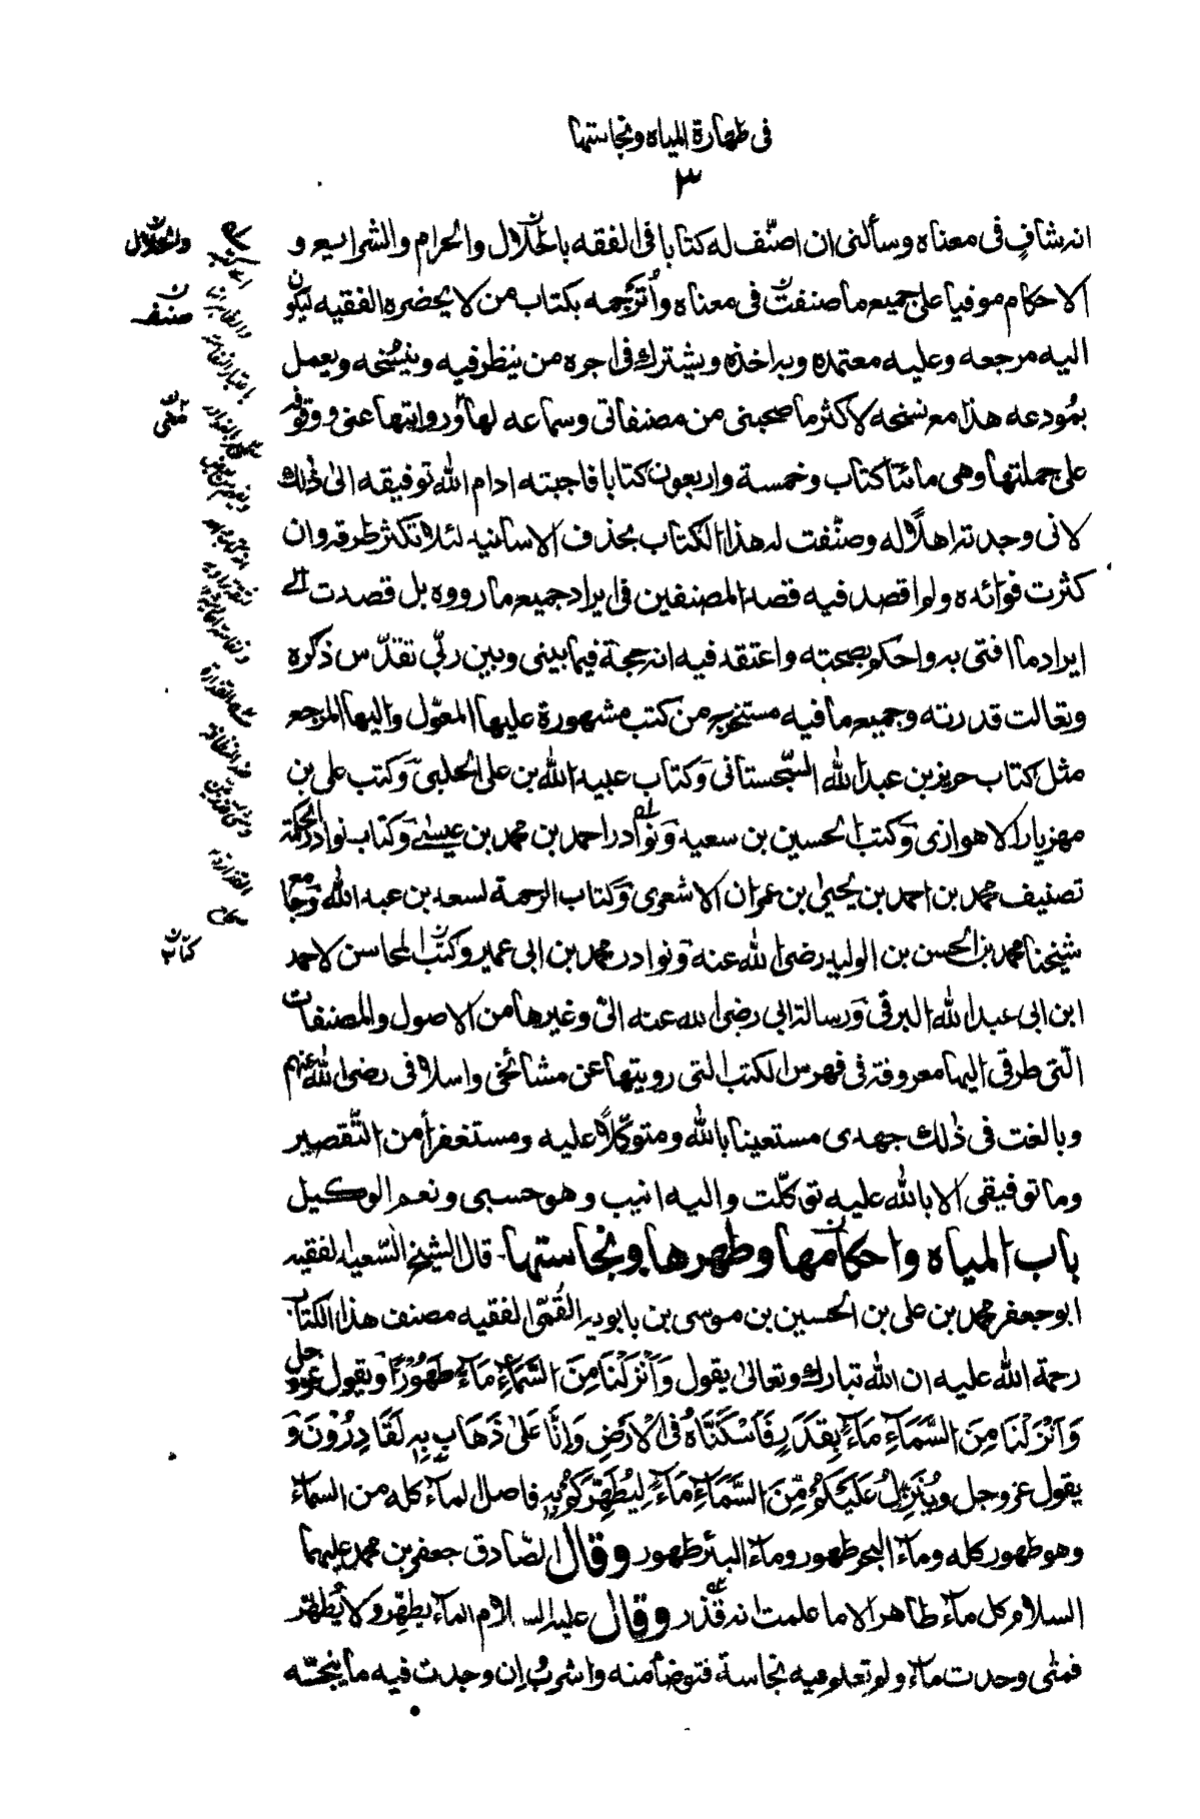 فی طهارة المیاه ونجاستها
۳
انه شافٍ فی معناه وسألنی ان اصنّف له کتابا فی الفقه بالحلال والحرام والشرایع و
الاحکام موفیا علی جمیع ما صنفت فی معناه وأُترجمه بکتاب من لا یحضره الفقیه لیکون
الیه مرجعه وعلیه معتمده وبه اخذه ویشترك فی اجره من ینظر فیه وینسُخه ویعمل
بمُودعه هذا مع نسخه لاکثر ما صحبنی من مصنفاتی وسماعه لها وروایتها عنی ووقوفه
علی جملتها وهی مائتا کتاب وخمسة واربعون کتابا فاجبته ادام الله توفیقه الی ذٰلك
لانی وجدته اهلًا له وصنّفت له هذا الکتاب بحذف الاسانید لئلا تکثر طرقه وان
کثرت فوائده ولم اقصد فیه قصد المصنفین فی ایراد جمیع ما رووه بل قصدت الی
ایراد ما افتی به واحکم بصحته واعتقد فیه انه حجة فیما بینی وبین ربّی تقدّس ذکره
وتعالت قدرته وجمیع ما فیه مستخرج من کتب مشهورة علیها المعوّل والیها المرجع
مثل کتاب حریز بن عبد الله السّجستانی وَکتاب عبید الله بن علی الحلبی وَکتب علی بن
مهزیار الاهوازی وَکتب الحسین بن سعید وَنوادر احمد بن محمد بن عیسٰی وَکتاب نوادر الحکمة
تصنیف محمد بن احمد بن یحیٰی بن عمران الاشعری وَکتاب الرحمة لسعد بن عبد الله وَجامع
شیخنا محمد بن الحسن بن الولید رضی الله عنه وَنوادر محمد بن ابی عمیر وکتب المحاسن لاحمد
ابن ابی عبد الله البرقی وَرسالة ابی رضی الله عنه الیّ وغیرها من الاصول والمصنفات
الّتی طرقی الیها معروفة فی فهرس الکتب التی رویتها عن مشائخی واسلافی رضی الله عنهم
وبالغت فی ذٰلك جهدی مستعینا بالله ومتوکّلًا علیه ومستغفرًا من التّقصیر
وما توفیقی الا بالله علیه توکّلت والیه انیب وهو حسبی ونعم الوکیل
باب المیاه واحکامها وطهرها ونجاستها۔ قال الشیخ السّعید الفقیه
ابو جعفر محمد بن علی بن الحسین بن موسی بن بابویه القُمّی الفقیه مصنف هذا الکتاب
رحمة الله علیه ان الله تبارك وتعالٰی یقول وَاَنْزَلْنَا مِنَ السَّمَآءِ مَآءً طَهُوْرًا ویقول عزوجل
وَاَنْزَلْنَا مِنَ السَّمَآءِ مَآءً بِقَدَرٍ فَاَسْکَنّٰاهُ فِی الْاَرْضِ وَاِنَّا عَلٰی ذَهَابٍ بِهٖ لَقَادِرُوْنَ وَ
یقول عزوجل وَیُنَزِّلُ عَلَیْکُمْ مِّنَ السَّمَآءِ مَآءً لِیُطَهِّرَکُمْ بِهٖ فاصل الماء کله من السماء
وهو طهور کله وماء البحر طهور وماء البئر طهور وقال الصّادق جعفر بن محمد علیهما
السلام کل ماء طاهر الا ما علمت انه قذر وقال علیه السلام الماء یطهِّر ولا یُطهَّر
فمتی وجدت ماء ولم تعلم فیه نجاسة فتوضأ منه واشرب وان وجدت فیه ما ینجّسه
والحلال
صنف
کتاب